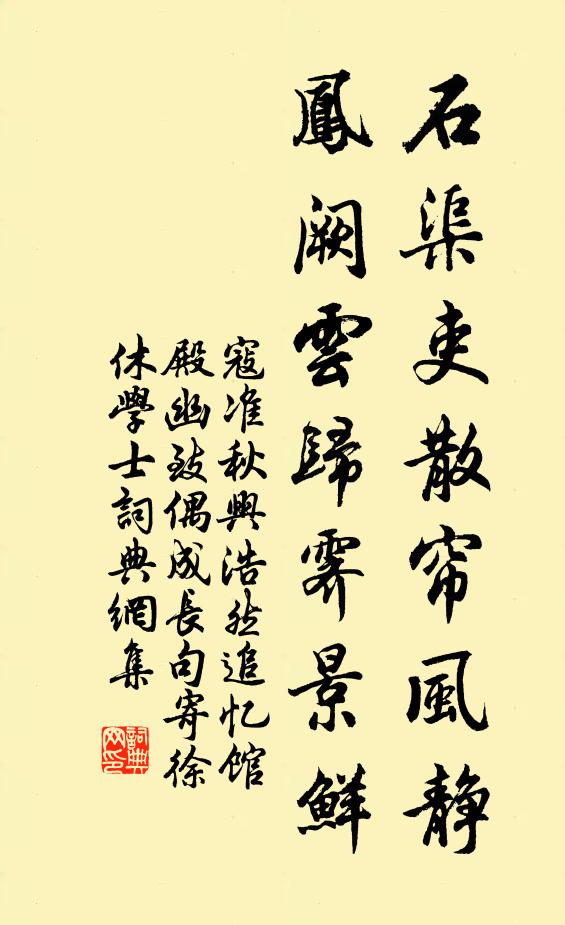 石渠吏散帘風静
鳳阙雲歸霽景鮮
寇准秋興浩然追忆馆
殿幽致偶成長句寄徐
休學士詞典網集
詞典
网印